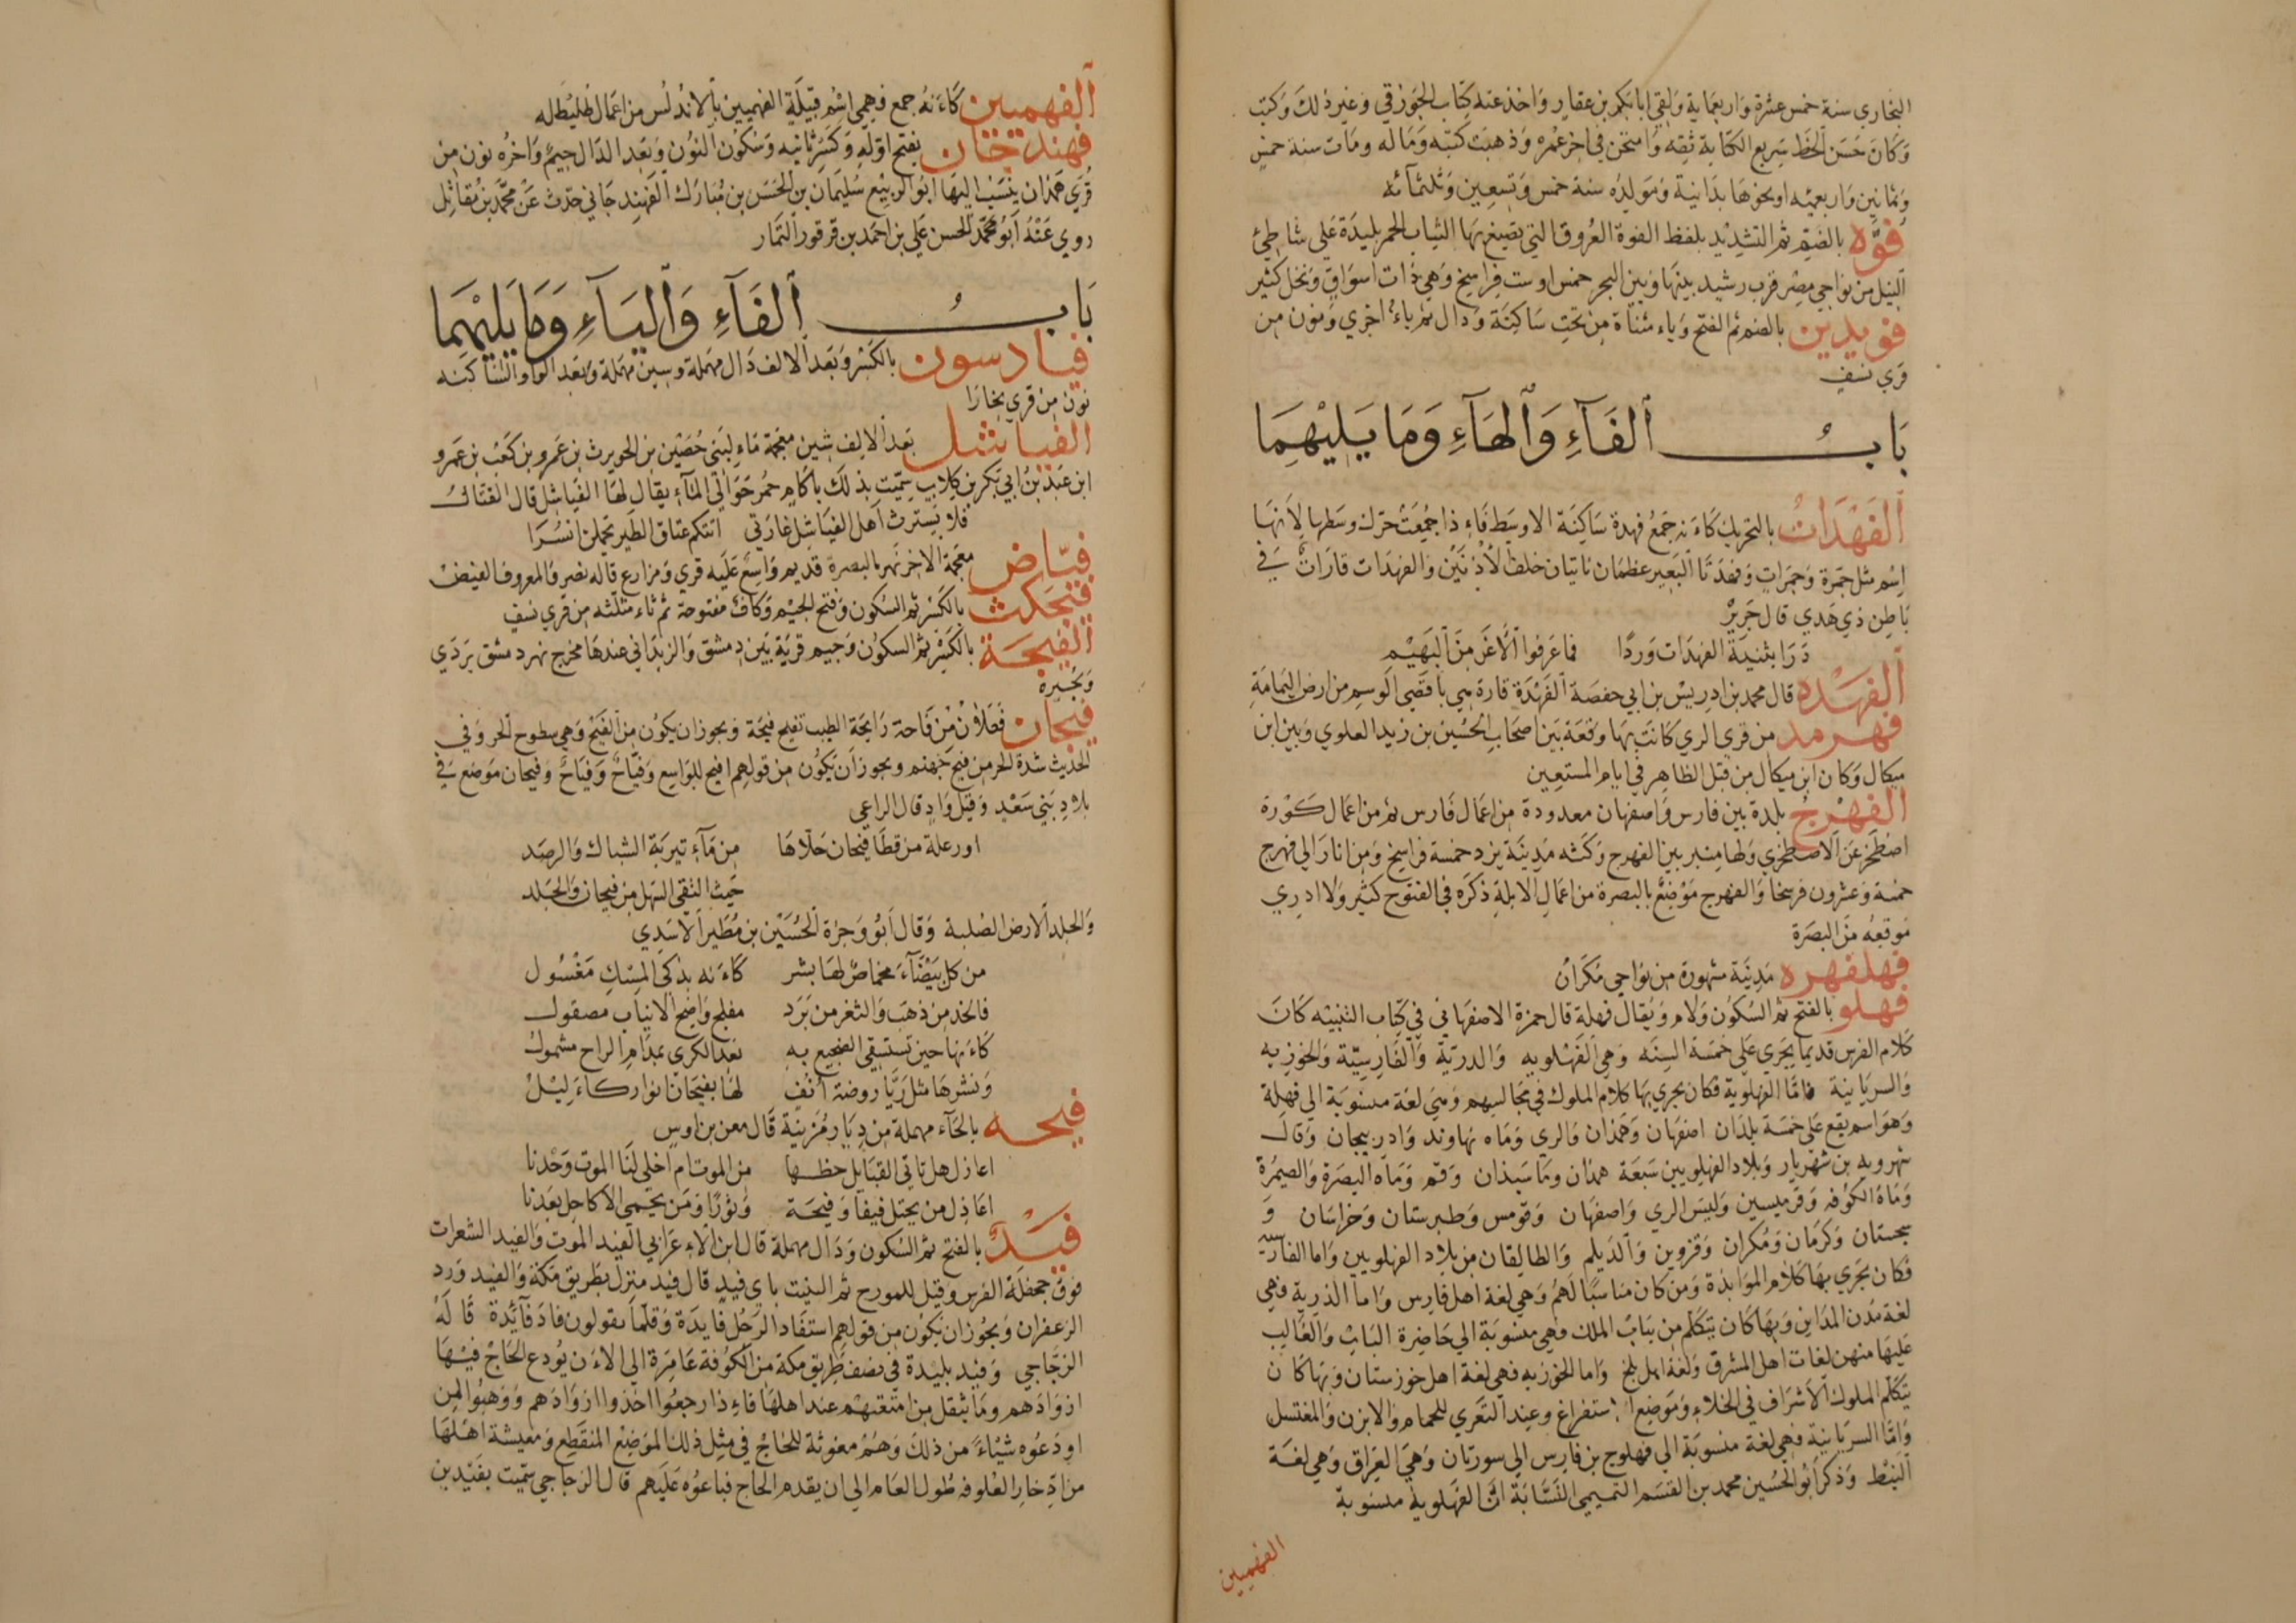 البخاري سنة خمس عشرة واربعماية ولقي ابابكر بن عقار واخذ عنه كتاب الجوزقي وغير ذلك وكتب
وكان حسن الخط سريع الكتابة ثقه وامتحن في اخر عمره وذهبت كتبه وماله ومات سنة خمس
وثمانين واربعميه او نحوها بدانية ومولده سنة خمس وتسعين وثلثمائه
فوه بالضم ثم التشديد بلفظ الفوة العروق التي تصبغ بها الثياب الحمر بليدة على شاطئ
النيل من نواحي مصر قرب رشيد بينها وبين البحر خمس او ست فراسخ وهي ذات اسواق ونخل كثير
فويدين بالضم ثم الفتح وياء مثناة من تحت ساكنة ودال ثم ياء اخري ونون من
قري نسف
باب الفآء والهآء وما يليهما
الفهدات بالتحريك كاءنه جمع فهدة ساكنة الاوسط فاءذا جمعت حرك وسطها لانها
اسم مثل جمرة وجمرات وفهدتا البعير عظمان ناتيان خلف الاذنين والفهدات قارات في
باطن ذي هدي قال جرير
دراب ثنية الفهدات وردا فما عرفوا الاغر من البهيم
الفهده قال محمد بن ادريس بن ابي حفصة الفهدة قارة هي باقصي الوسم من ارض اليمامة
فهرمد من قري الري كانت بها وقعة بين اصحاب الحسين بن زيد العلوي وبين ابن
ميكال وكان ابن ميكال من قبل الظاهر في ايام المستعين
الفهرج بلدة بين فارس واصفهان معدودة من اعمال فارس ثم من اعمال كورة
اصطخر عن الاصطخري ولها منبر بين الفهرج وكثه مدينة يزد خمسة فراسخ ومن انار الي فهرج
خمسة وعشرون فرسخا والفهرج موضع بالبصرة من اعمال الابلة ذكره في الفتوح كثير ولا ادري
موقعه من البصرة
فهلفهره مدينة مشهورة من نواحي مكران
فهلو بالفتح ثم السكون ولام ويقال فهلة قال حمزة الاصفهاني في كتاب التنبيه كان
كلام الفرس قديما يجري على خمسة السنه وهي الفهلويه والدرية والفارسية والخوزيه
والسريانية فاما الفهلوية فكان يجري بها كلام الملوك في مجالسهم وهي لغة منسوبة الي فهلة
وهو اسم يقع على خمسة بلدان اصفهان وهمذان والري وماه نهاوند واذربيجان وقال
شهرويه بن شهريار وبلاد الفهلويين سبعة همدان وماسبذان وقم وماه البصرة والصيمرة
وماه الكوفه وقرميسين وليس الري واصفهان وقومس وطبرستان وخراسان و
سجستان وكرمان ومكران وقزوين والديلم والطالقان من بلاد الفهلويين واما الفارسية
فكان يجري بها كلام الموابذة ومن كان مناسبا لهم وهي لغة اهل فارس واما الدرية فهي
لغة مدن المداين وبها كان يتكلم من بباب الملك فهي منسوبة الي حاضرة الباب والغالب
عليها منهن لغات اهل المشرق ولغة اهل بلخ واما الخوزيه فهي لغة اهل خوزستان وبها كان
يتكلم الملوك الاشراف في الخلاء وموضع استفراغ وعند التعري للحمام والابزن والمغتسل
واما السريانية فهي لغة منسوبة الي فهلوج بن فارس الي سورتان وهي العراق وهي لغة
النبط وذكر ابو الحسين محمد بن القسم التميمي النسابة ان الفهلوية منسوبة
الفهميين
الفهميين كاءنه جمع فهمي اسم قبيلة الفهميين بالاندلس من اعمال طليطله
فهندجان بفتح اوله وكسر ثانيه وسكون النون وبعد الدال جيم واخره نون من
قري همذان ينسب اليها ابو الربيع سليمان بن الحسن بن مبارك الفهندجاني حدث عن محمد بن مقاتل
روي عنه ابو محمد الحسن علي بن احمد بن قرقور التمار
باب الفآء واليآء وما يليهما
فيادسون بالكسر وبعد الالف دال مهملة وسين مهملة وبعد الواو الساكنه
نون من قري بخارا
الفياشل بعد الالف شين معجمة ماء لبني حصين بن الحويرث بن عمرو بن كعب بن عمرو
ابن عبد بن ابي بكر بن كلاب سميت بذلك باكام حمر حوالي المآء يقال لها الفياشل قال القتال
فلا يسترث اهل الفياشل غارتي اتتكم عتاق الطير يحملن انسرا
فياض معجمة الاخر نهر بالبصرة قديم واسع عليه قري ومزارع قاله نصر والمعروف الفيض
فيجكث بالكسر ثم السكون وفتح الجيم وكاف مفتوحة ثم ثاء مثلثه من قري نسف
الفيجة بالكسر ثم السكون وجيم قرية بين دمشق والزبداني عندها مخرج نهر دمشق بردي
وبحيره
فيحان فعلان من فاحت رايحة الطيب تفيح فيحة ويجوز ان يكون من الفيح وهي سطوح الحر وفي
الحديث شدة الحر من فيح جهنم ويجوز ان يكون من قولهم افيح للواسع وفياح وفياح وفيحان موضع في
بلاد بني سعد وقيل واد قال الراعي
او رعلة من قطا فيحان حلاها من مآء تبرية الشباك والرصد
حيث التقي السهل من فيحان والجلد
والجلد الارض الصلبة وقال ابو وجزة الحسين بن مطير الاسدي
من كل بيضآء مخماص لها بشر كاءنه بذكي المسك مغسول
فالخد من ذهب والثغر من برد مفلج واضح الانياب مصقول
كاءنها حين تستسقي الضجيع به بعد الكري بمدام الراح مشمول
ونشرها مثل ريا روضة انف لها بفيحان نوار كاءليل
فيحه بالحآء مهملة من ديار مزينة قال معن بن اوس
اعاذل هل تاتي القبايل حظها من الموت ام اخلي لنا الموت وحدنا
اعاذل من يحتل فيفا وفيحة وثورا ومن يحمي الاكاحل بعدنا
فيد بالفتح ثم السكون ودال مهملة قال ابن الاعرابي الفيد الموت والفيد الشعرات
فوق جحفلة الفرس وقيل للمورج ثم البيت باي فيد قال فيد منزل بطريق مكة والفيد ورد
الزعفران ويجوز ان يكون من قولهم استفاد الرجل فايدة وقلما يقولون فاد فآئدة قاله
الزجاجي وفيد بليدة في نصف طريق مكة من الكوفة عامرة الي الاءن يودع الحاج فيها
ازوادهم وما يثقل من امتعتهم عند اهلها فاءذا رجعوا اخذوا ازوادهم ووهبوا لمن
اودعوه شياء من ذلك وهم معوثة للحاج في مثل ذلك الموضع المنقطع ومعيشة اهلها
من ادخار العلوفه طول العام الي ان يقدم الحاج فباعوه عليهم قال الزجاجي سميت بفيد بن